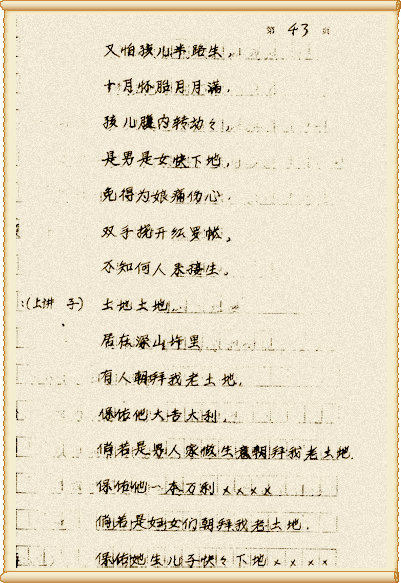 第 43 页
又怕孩儿半路生,
十月怀胎月月满,
孩儿腹内转动々,
是男是女快下地,
免得为娘痛伤心.
双手挠开红罗帐。
不知何人来接生。
子) 土地土地,
居在深山 里
有人朝拜我老土地,
保佑他大吉大利,
倘若是男人家做生意朝拜我老土地.
保佑他一本万利××××
倘若是妇女们朝拜我老土地.
保佑她生儿子快々下地××××